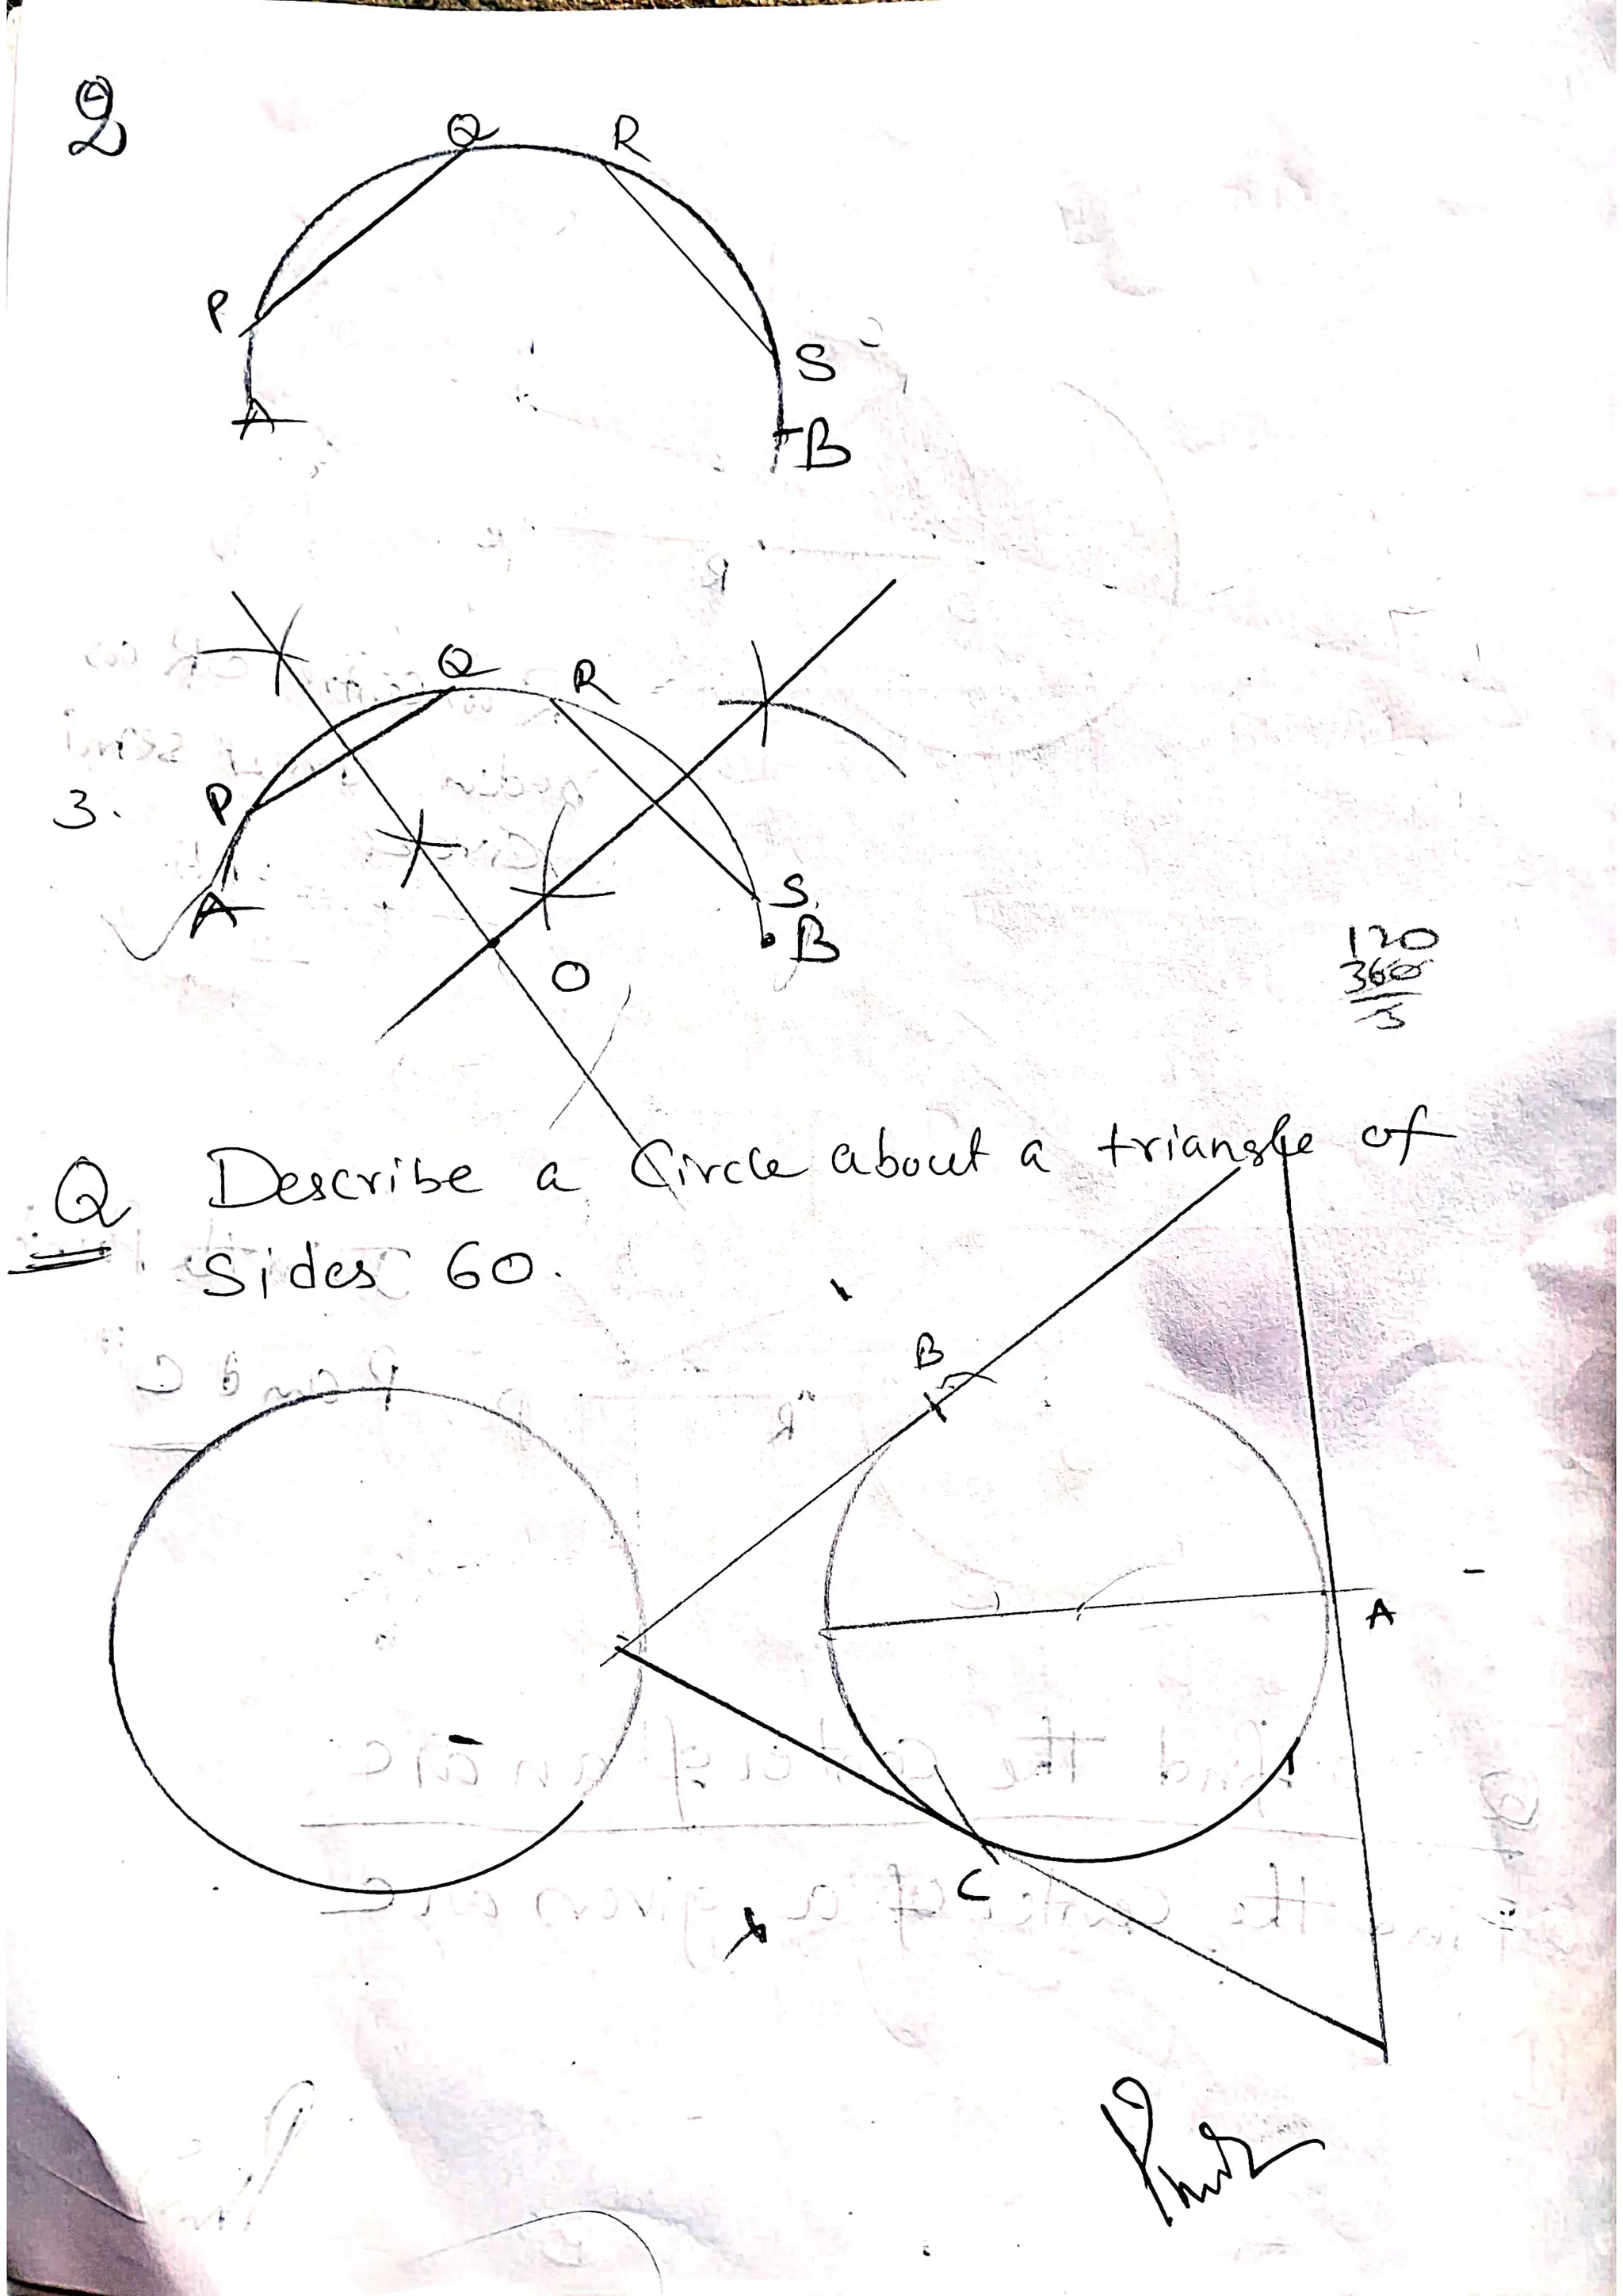 2
Q R
P
S
A
B
Q R
3. P
A
S
B
O
120
360
3
Q Describe a Circle about a triangle of
Sides 60.
B
A
C